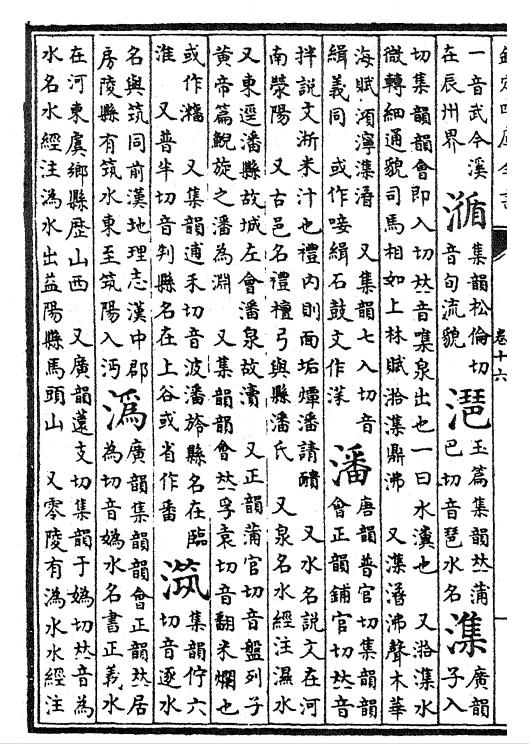 卷十六
一音武今溪
在辰州界
集韻松倫切
音旬流貌
潖
玉篇集韻𠀤蒲
巴切音琶水名
潗
廣韻
子入
切集韻韻會即入切𠀤音㗱泉出也一曰水瀵也 又湁潗水
微轉細通貌司馬相如上林賦湁潗鼎沸 又潗沸聲木華
海賦澒濘潗 又集韻七入切音
緝義同 或作唼緝石鼓文作
潘
唐韻普官切集韻韻
會正韻鋪官切𠀤音
拌說文淅米汁也禮內則面垢燂潘請靧 又水名說文在河
南滎陽 又古邑名禮檀弓與縣潘氏 又泉名水經注濕水
又東逕潘縣故城左會潘泉故瀆 又正韻蒲官切音盤列子
黃帝篇鯢旋之潘為淵 又集韻韻會𠀤孚袁切音翻米爛也
或作 又集韻逋禾切音波潘旍縣名在臨
淮 又普半切音判縣名在上谷或省作番
集韻佇六
切音逐水
名與筑同前漢地理志漢中郡
房陵縣有筑水東至筑陽入沔
潙
廣韻集韻韻會正韻𠀤居
為切音嬀水名書正義水
在河東虞鄉縣歷山西 又廣韻薳支切集韻于嬀切𠀤音為
水名水經注潙水出益陽縣馬頭山 又零陵有潙水水經注